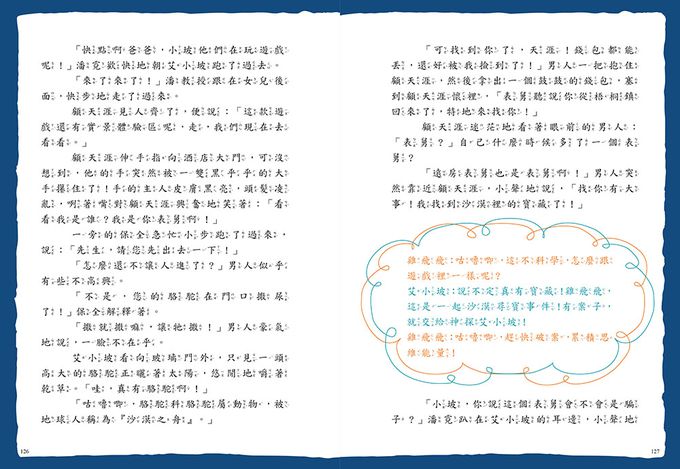 「快點啊爸爸，小坡他們在玩遊戲
呢！」潘霓歡快地朝艾小坡跑了過去。
「來了來了！」潘教授跟在女兒後
面，快步地走了過來。
顧天涯見人齊了，便說：「這款遊
戲還有實景體驗區呢，走，我們現在去
看看。」
顧天涯伸手指向酒店大門，可沒
想到，他的手突然被一雙黑乎乎的大
手攥住了！手的主人皮膚黑亮，頭髮凌
亂，咧著嘴對顧天涯興奮地笑著：「看
看我是誰？我是你表舅啊！」
一旁的保全急忙小步跑了過來，
說：「先生，請您先出去一下！」
「怎麼還不讓人進了？」男人似乎
有些不高興。
「不是，您的駱駝在門口撒尿
了！」保全解釋著。
「撒就撒嘛，讓牠撒！」男人豪氣
地說，一臉不在乎。
艾小坡看向玻璃門外，只見一頭
高大的駱駝正曬著太陽，悠閒地嚼著
乾草。「哇，真有駱駝啊！」
「咕嚕唧，駱駝科駱駝屬動物，被
地球人稱為『沙漠之舟』。」
126
「可找到你了，天涯！錢包都能
丟，還好被我撿到了！」男人一把抱住
顧天涯，然後拿出一個鼓鼓的錢包，塞
到顧天涯懷裡，「表舅聽說你從梧桐鎮
回來了，特地來找你！」
顧天涯迷茫地看著眼前的男人：
「表舅？」自己什麼時候多了一個表
舅？
「遠房表舅也是表舅啊！」男人突
然靠近顧天涯，小聲地說，「找你有大
事！我找到沙漠裡的寶藏了！」
雞飛飛：咕嚕唧，這不科學，怎麼跟
遊戲裡一樣呢？
艾小坡：說不定真有寶藏！雞飛飛，
這是一起沙漠尋寶事件！有案子，
就交給神探艾小坡！
雞飛飛：咕嚕唧，趕快破案，累積思
維能量！
「小坡，你說這個表舅會不會是騙
子？」潘霓趴在艾小坡的耳邊，小聲地
127